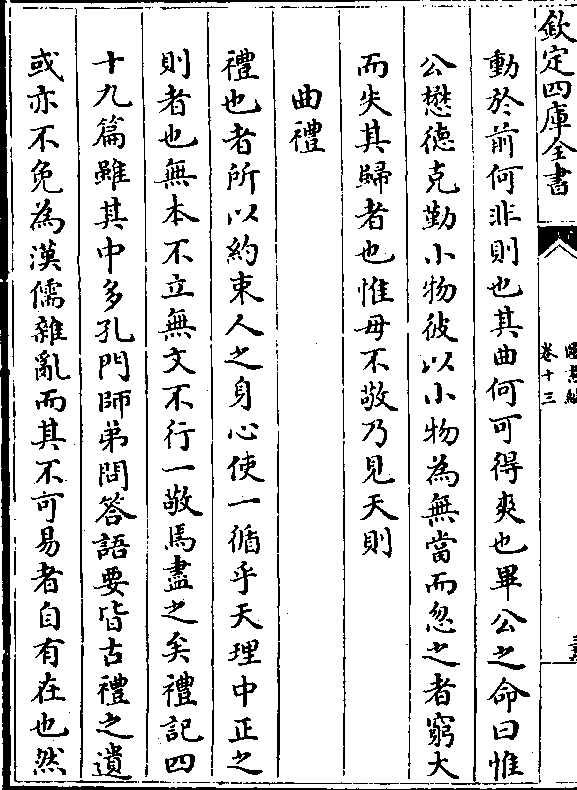 欽定四庫全書
卷十三
動於前何非則也其曲何可得爽也畢公之命曰惟
公懋德克勤小物彼以小物為無當而忽之者窮大
而失其歸者也惟毋不敬乃見天則
曲禮
禮也者所以約束人之身心使一循乎天理中正之
則者也無本不立無文不行一敬焉盡之矣禮記四
十九篇雖其中多孔門師弟問答語要皆古禮之遺
或亦不免為漢儒雜亂而其不可易者自有在也然